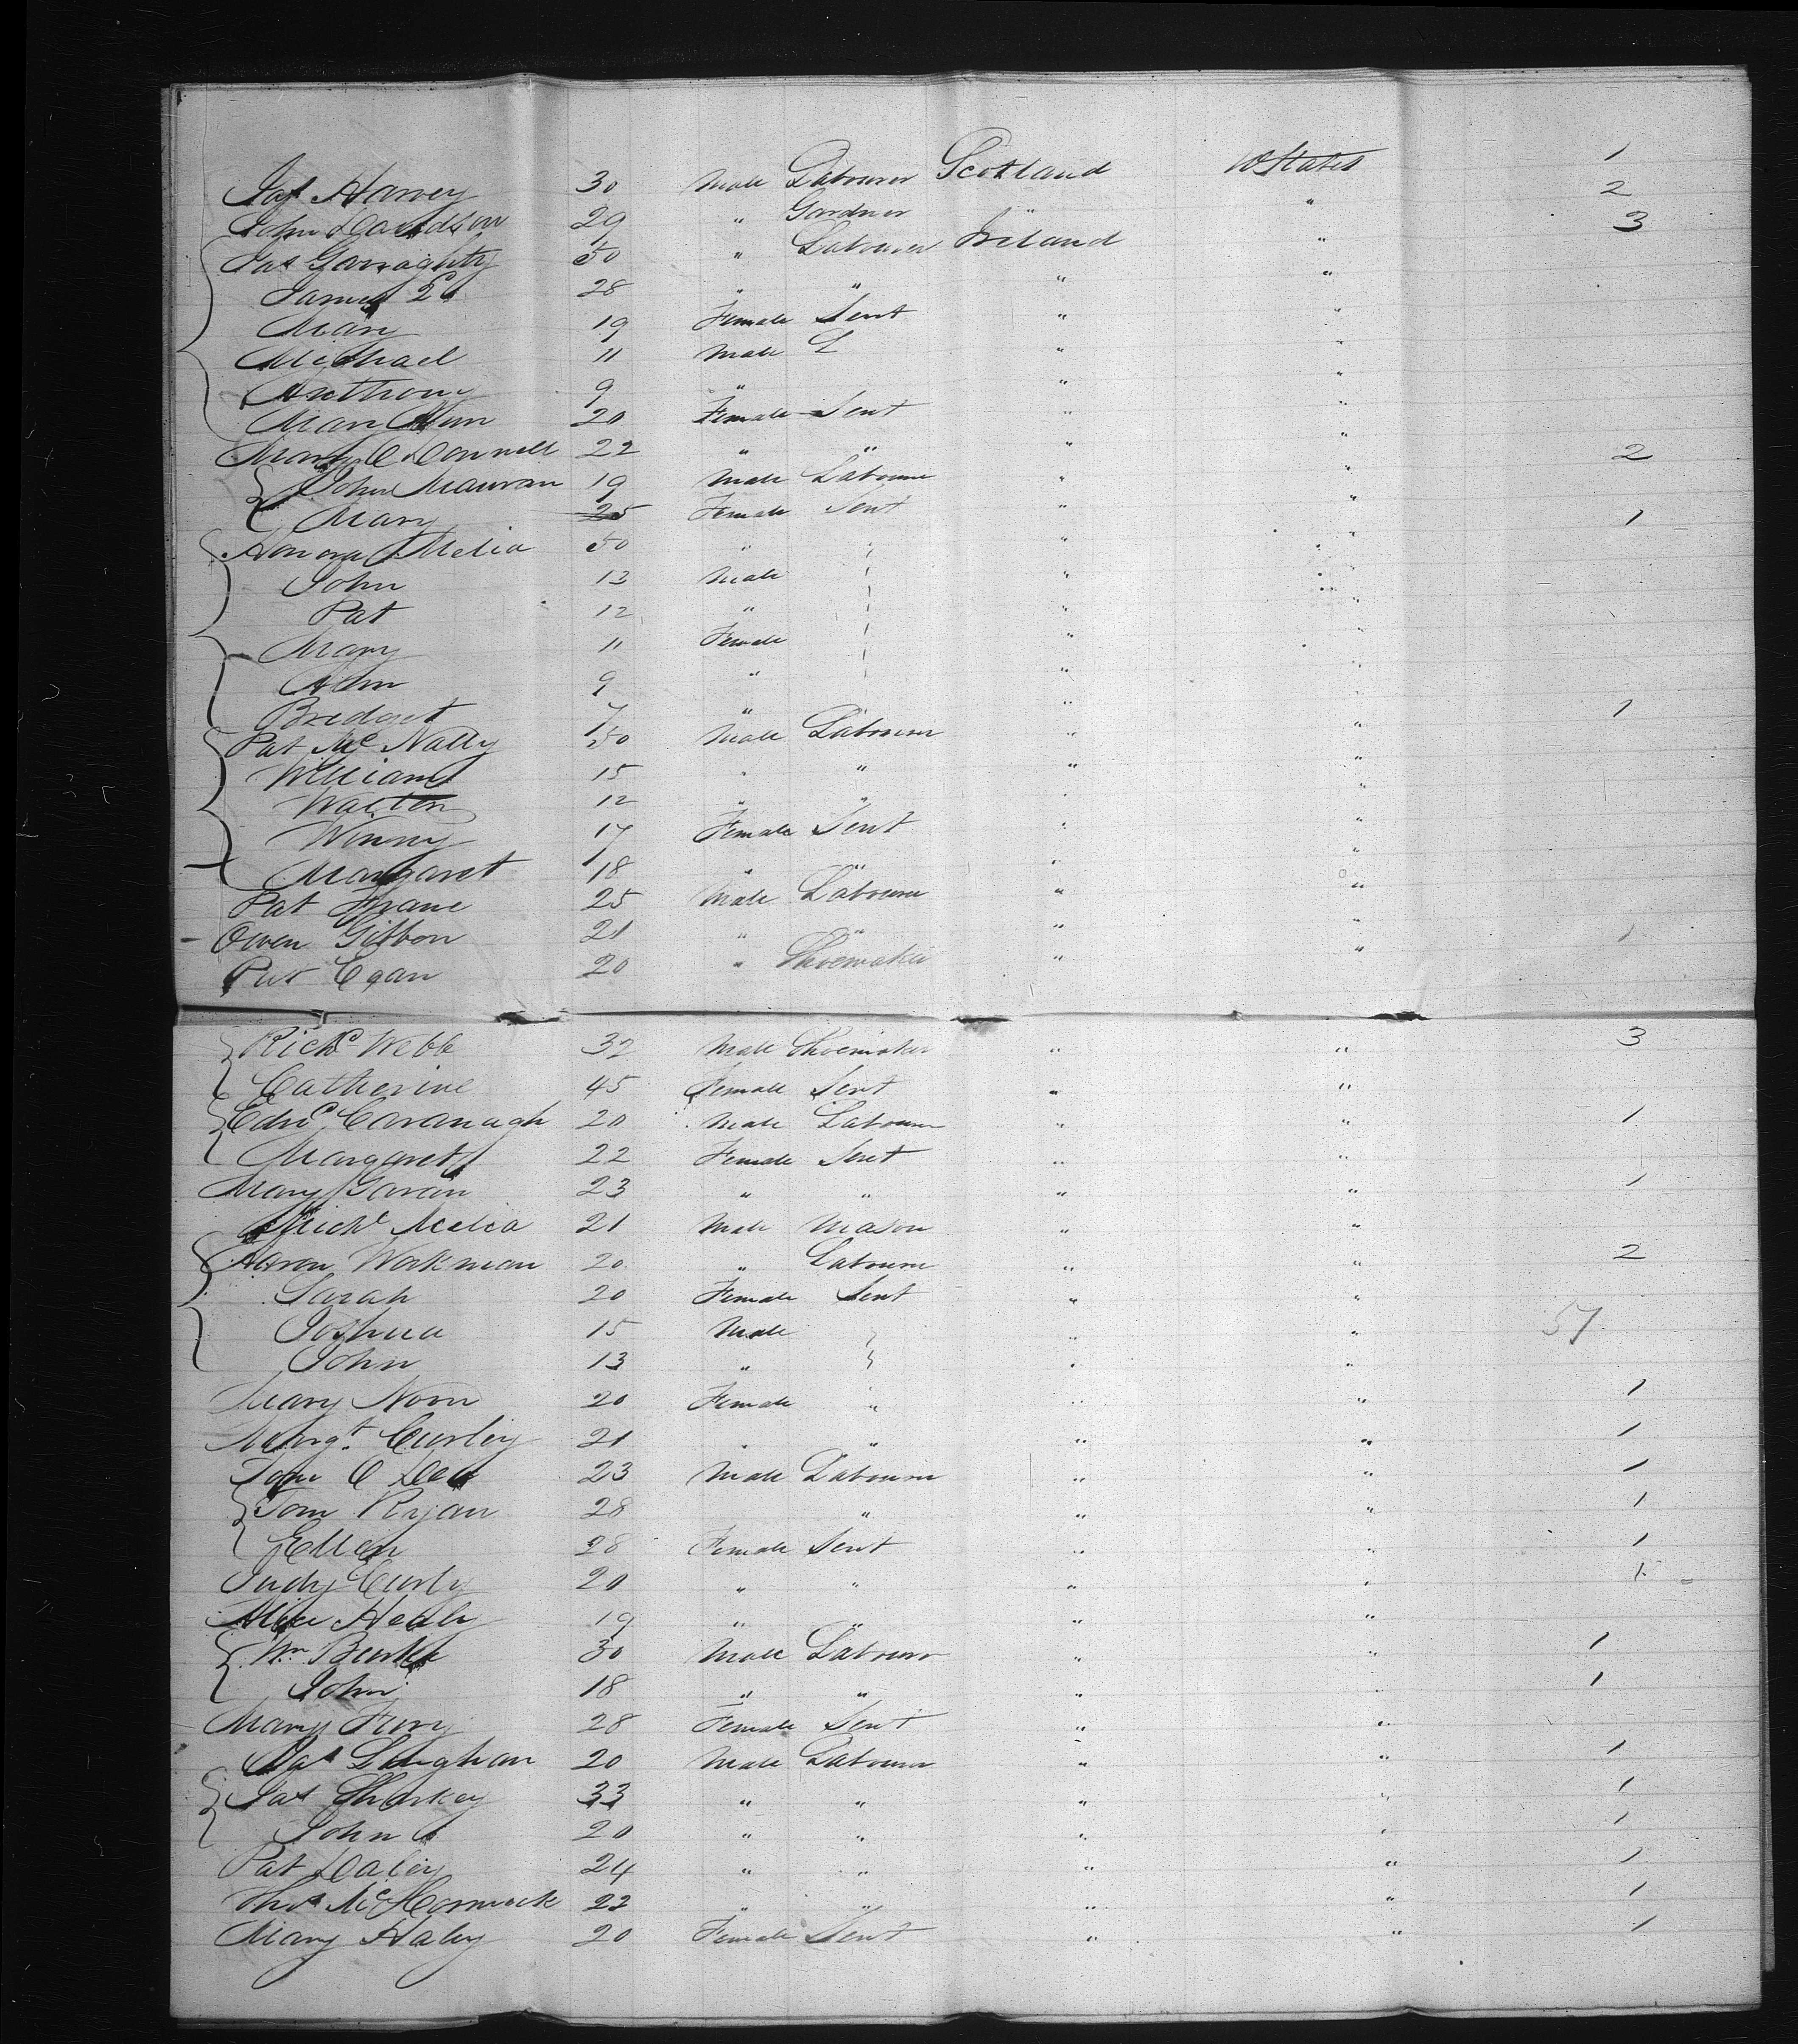 Jas Harvey 30 Male Labourer Scotland U States 1
John Davidson 29 " Gardner " " 2
Jas Garraghty 50 " Labourer Ireland " 3
James 28 " " " "
Mary 19 Female Sert " "
Michael 11 Male " "
Anthony 9 " " "
Mary Ann 20 Female Sert " "
Mary O Donnell 22 " " " "
John 19 Male Labourer " " 2
Mary 25 Female Sert " "
Honora Melia 50 " " " 1
John 13 Male " "
Pat 12 " " "
Mary 11 Female " "
Ann 9 " " "
Bridget 7 " "
Pat Mc Nally 50 Male Labourer " " 1
William 15 " " " "
Walter 12 " " " "
Winny 17 Female Sert " "
Margaret 18 " " " "
Pat 25 Male Labourer " "
Owen Gibbon 21 " " " " 1
Pat Egan 20 " Shoemaker " "
Richd Webb 32 Male Shoemaker " " 3
Catherine 45 Female Sert " "
Edwd Cavanagh 20 Male Labourer " " 1
Margaret 22 Female Sert " "
Mary Gavan 23 " " " " 1
Michl Melia 21 Male Mason " "
Aaron Workman 20 " Labourer " " 2
Sarah 20 Female Sert " "
Joshua 15 Male " " 51
John 13 " " "
Mary Noon 20 Female " " " 1
Margt. Curley 21 " " " " 1
Tom O Dea 23 Male Labourer " " 1
Tom Ryan 28 " " " 1
Ellen 28 Female Sert " " 1
Judy Curly 20 " " " " 1
Alice Healy 19 " " " "
Wm Burke 30 Male Labourer " " 1
John 18 " " " " 1
Mary Fury 28 Female Sert " "
20 Male Labourer " " 1
Jas Sharkey 33 " " " " 1
John 20 " " " " 1
Pat Daley 24 " " " " 1
Thos McCormick 22 " " " " 1
Mary Haley 20 Female Sert " " 1